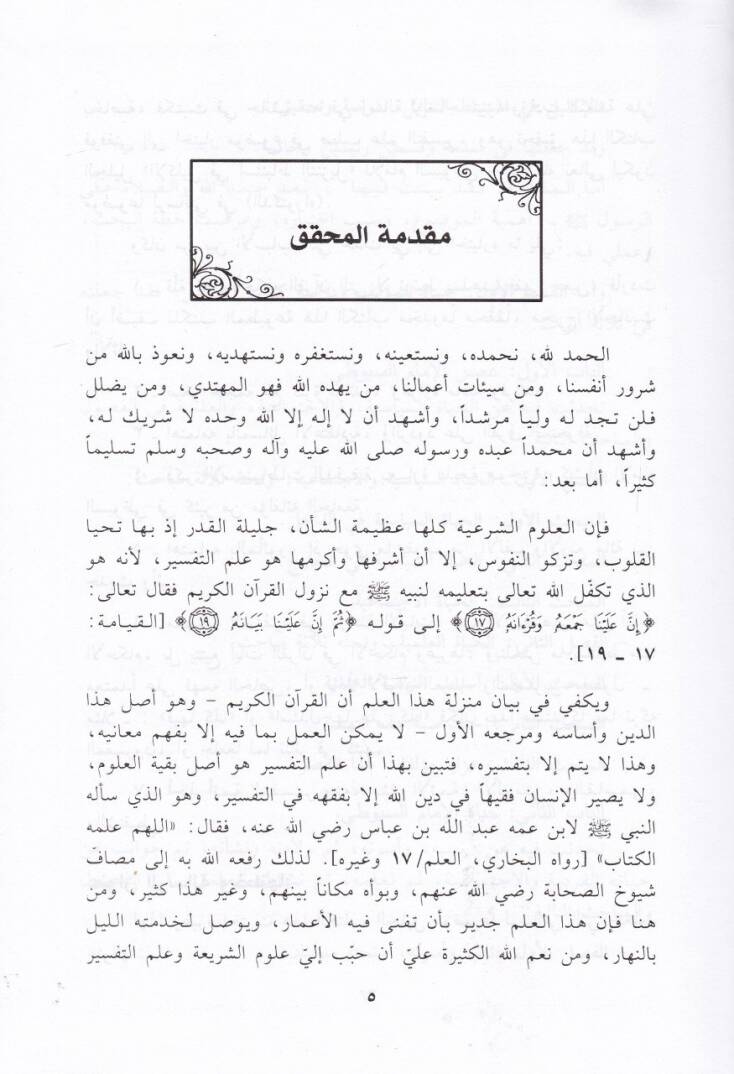 مقدمة المحقق
الحمد لله، نحمده، ونستعينه، ونستغفره ونستهديه، ونعوذ بالله من
شرور أنفسنا، ومن سيئات أعمالنا، من يهده الله فهو المهتدي، ومن يضلل
فلن تجد له ولياً مرشداً، وأشهد أن لا إله إلا الله وحده لا شريك له،
وأشهد أن محمداً عبده ورسوله صلى الله عليه وآله وصحبه وسلم تسليماً
كثيراً، أما بعد:
فإن العلوم الشرعية كلها عظيمة الشأن، جليلة القدر إذ بها تحيا
القلوب، وتزكو النفوس، إلا أن أشرفها وأكرمها هو علم التفسير، لأنه هو
الذي تكفّل الله تعالى بتعليمه لنبيه ﷺ مع نزول القرآن الكريم فقال تعالى:
﴿إِنَّ عَلَيْنَا جَمْعَهُ وَقُرْءَانَهُ ١٧﴾ إلى قوله ﴿ثُمَّ إِنَّ عَلَيْنَا بَيَانَهُ ١٩﴾ [القيامة:
١٧ - ١٩].
ويكفي في بيان منزلة هذا العلم أن القرآن الكريم - وهو أصل هذا
الدين وأساسه ومرجعه الأول - لا يمكن العمل بما فيه إلا بفهم معانيه،
وهذا لا يتم إلا بتفسيره، فتبين بهذا أن علم التفسير هو أصل بقية العلوم،
ولا يصير الإنسان فقيهاً في دين الله إلا بفقهه في التفسير، وهو الذي سأله
النبي ﷺ لابن عمه عبد اللّه بن عباس رضي الله عنه، فقال: «اللهم علمه
الكتاب» [رواه البخاري، العلم/١٧ وغيره]. لذلك رفعه الله به إلى مصافّ
شيوخ الصحابة رضي الله عنهم، وبوأه مكاناً بينهم، وغير هذا كثير، ومن
هنا فإن هذا العلم جدير بأن تفنى فيه الأعمار، ويوصل لخدمته الليل
بالنهار، ومن نعم الله الكثيرة عليّ أن حبّب إليّ علوم الشريعة وعلم التفسير
٥